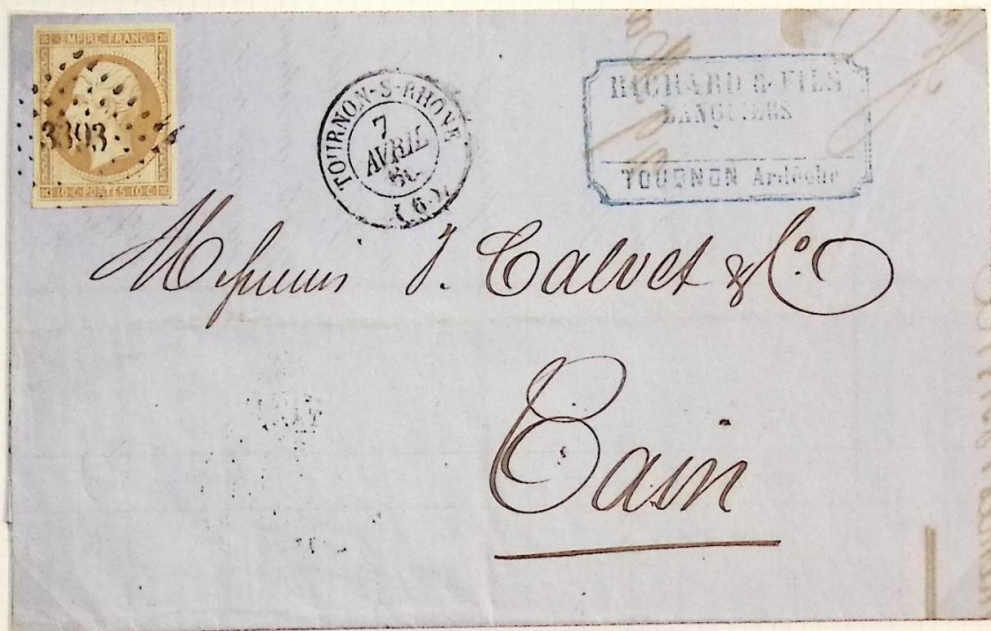 EMPIRE FRANC
3393
10 C. POSTES 10 C.
TOURNON-S-RHONE
7
AVRIL
(6)
RICHARD & FILS
BANQUIERS
TOURNON Ardèche
Messieurs J. Calvet & Cº.
Tain